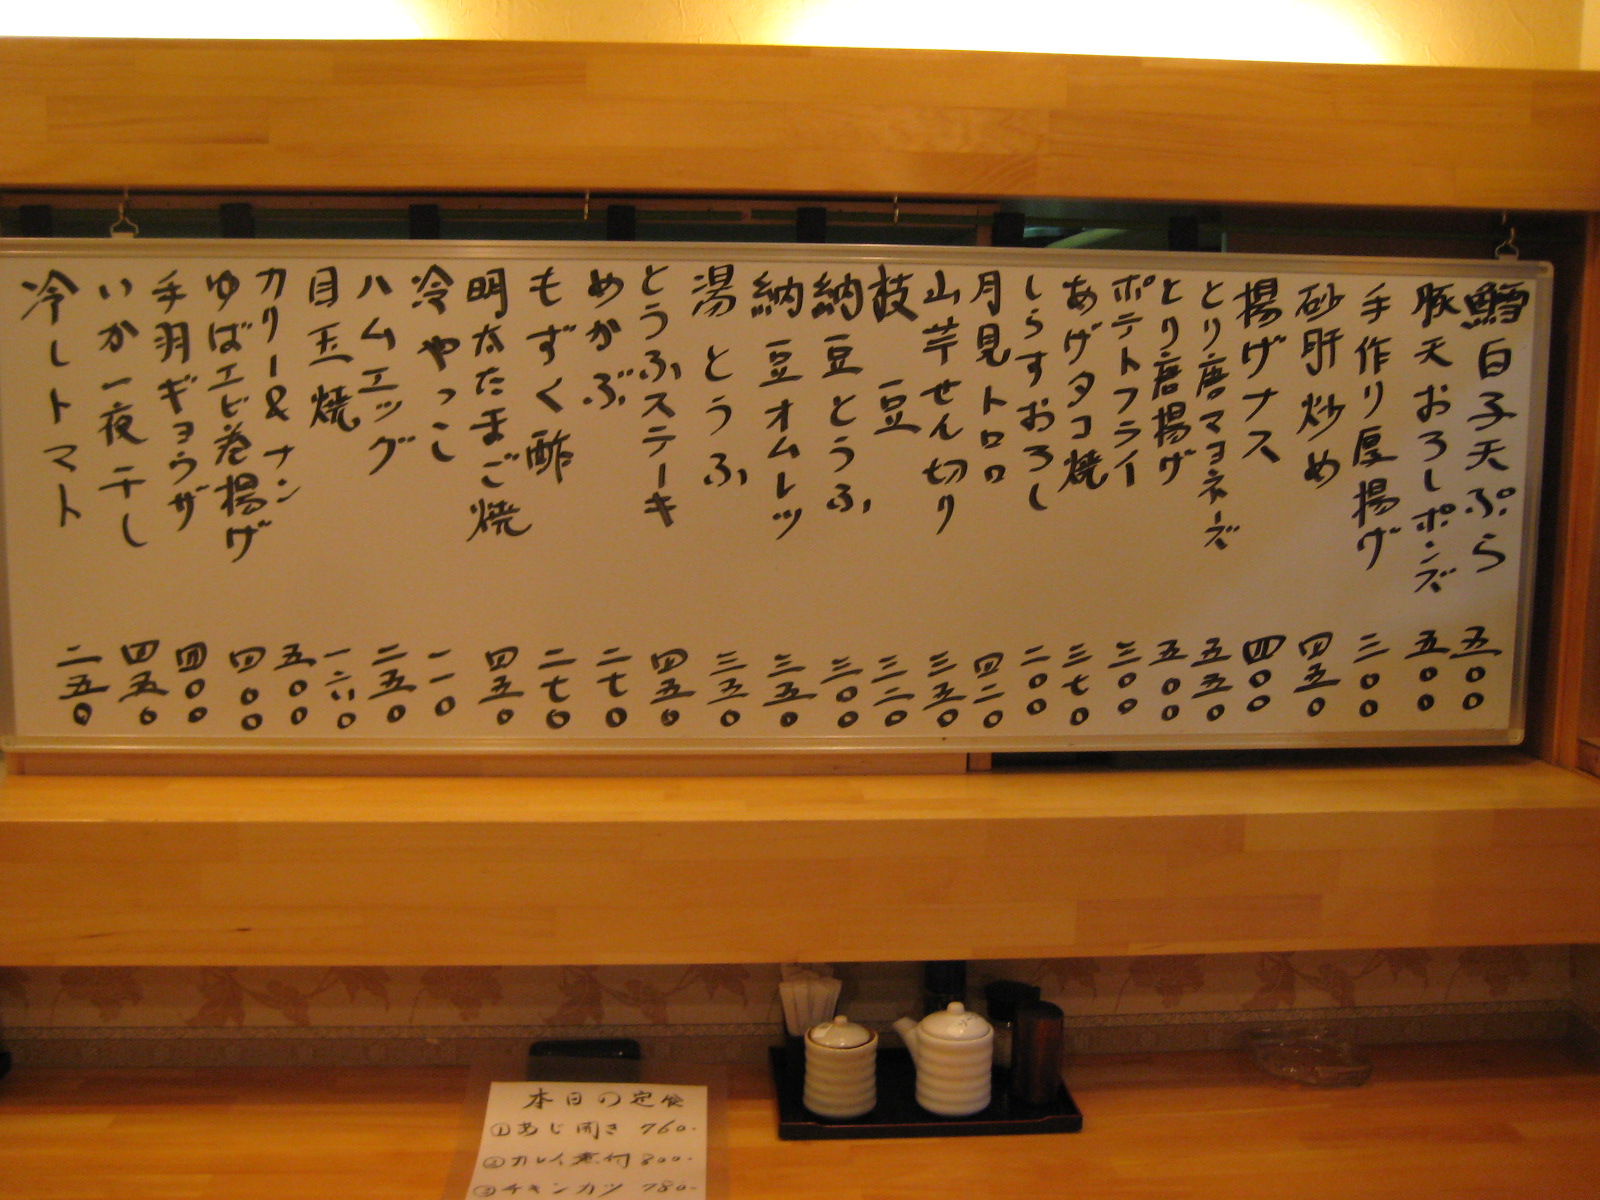 鱈白子天ぷら 五〇〇
豚天おろしポンズ 五〇〇
手作り厚揚げ 三〇〇
砂肝炒め 四五〇
揚げナス 四〇〇
とり唐マヨネーズ 五五〇
とり唐揚げ 五〇〇
ポテトフライ 三〇〇
あげタコ焼 三七〇
しらすおろし 二〇〇
月見トロロ 四二〇
山芋せん切り 三五〇
枝豆 三二〇
納豆とうふ 三〇〇
納豆オムレツ 三五〇
湯とうふ 三五〇
とうふステーキ 四五〇
めかぶ 二七〇
もずく酢 二七〇
明太たまご焼 四五〇
冷やっこ 二一〇
ハムエッグ 二五〇
目玉焼
カリー&ナン 五〇〇
ゆばエビ巻揚げ 四〇〇
手羽ギョウザ 四〇〇
いか一夜干し 四五〇
冷しトマト 二五〇
本日の定食
①あじ開き 760-
②カレイ煮付 800-
③チキンカツ 780-